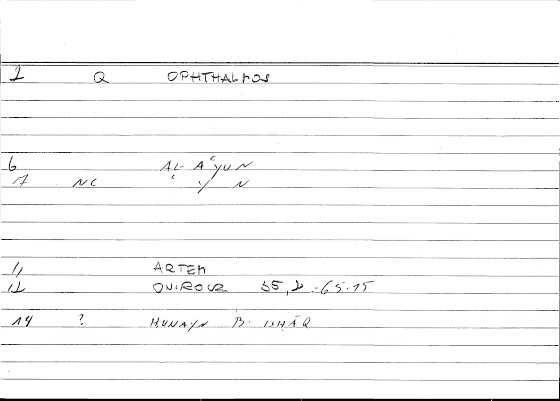 1 Q OPHTHALMOS
6 AL-A'YUN
7 NC ' Y N
11 ARTEM
12 QUIROUR 55,2-65.15
14 ? HUNAYN B. ISHĀQ